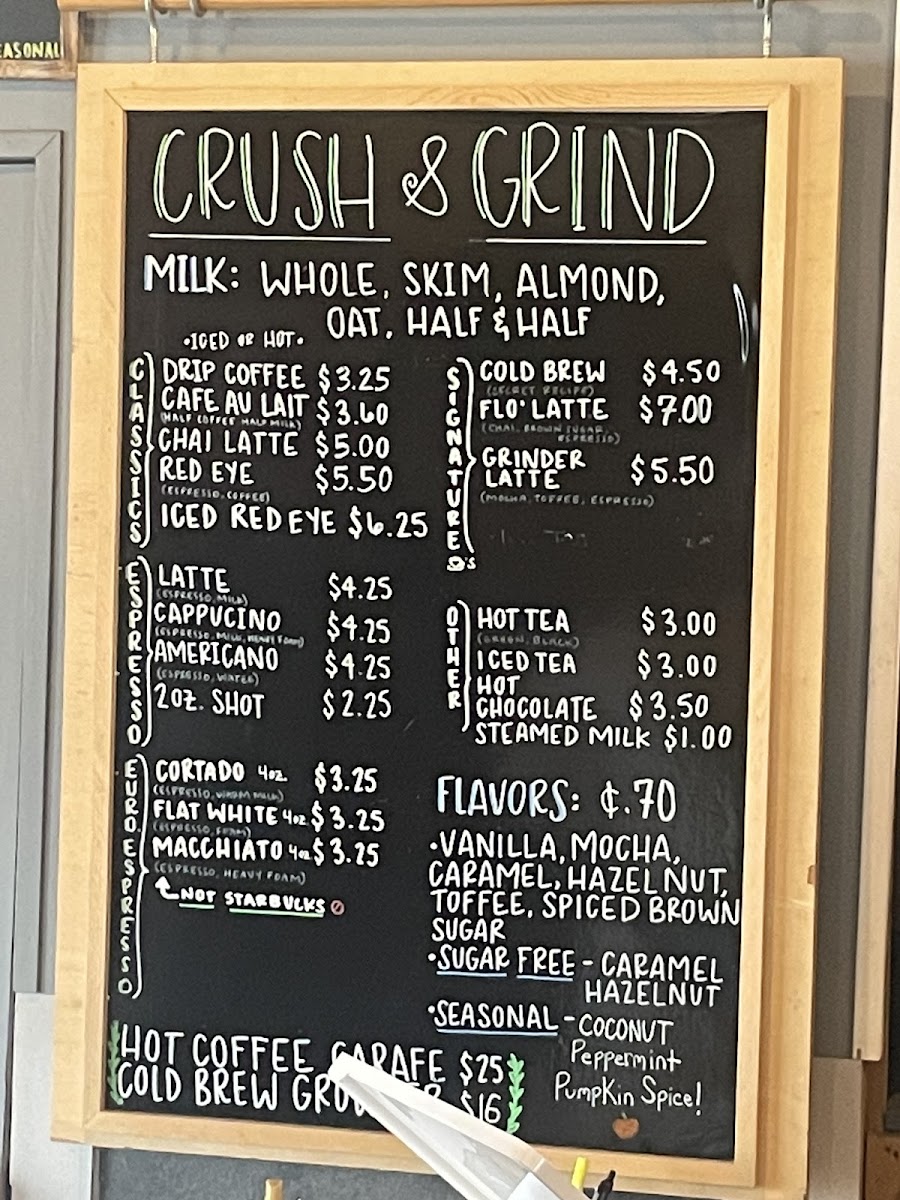 EASONAL
CRUSH & GRIND
MILK: WHOLE, SKIM, ALMOND,
OAT, HALF & HALF
•ICED OR HOT•
CLASSICS
DRIP COFFEE $3.25
CAFE AU LAIT $3.60
(HALF COFFEE HALF MILK)
CHAI LATTE $5.00
RED EYE $5.50
(ESPRESSO, COFFEE)
ICED RED EYE $6.25
SIGNATURE
COLD BREW $4.50
(SECRET RECIPE)
FLO' LATTE $7.00
(CHAI, BROWN SUGAR,
ESPRESSO)
GRINDER
LATTE $5.50
(MOCHA, TOFFEE, ESPRESSO)
ESPRESSO
LATTE $4.25
(ESPRESSO, MILK)
CAPPUCINO $4.25
(ESPRESSO, MILK, HEAVY FOAM)
AMERICANO $4.25
(ESPRESSO, WATER)
2OZ. SHOT $2.25
OTHER
HOT TEA $3.00
(GREEN, BLACK)
ICED TEA $3.00
HOT
CHOCOLATE $3.50
STEAMED MILK $1.00
EURO. ESPRESSO
CORTADO 4oz. $3.25
(ESPRESSO, WARM MILK)
FLAT WHITE 4oz $3.25
(ESPRESSO, FOAM)
MACCHIATO 4oz $3.25
(ESPRESSO, HEAVY FOAM)
NOT STARBUCKS
FLAVORS: ¢.70
•VANILLA, MOCHA,
CARAMEL, HAZELNUT,
TOFFEE, SPICED BROWN
SUGAR
•SUGAR FREE - CARAMEL
HAZELNUT
•SEASONAL - COCONUT
Peppermint
Pumpkin Spice!
HOT COFFEE CARAFE $25
COLD BREW $16